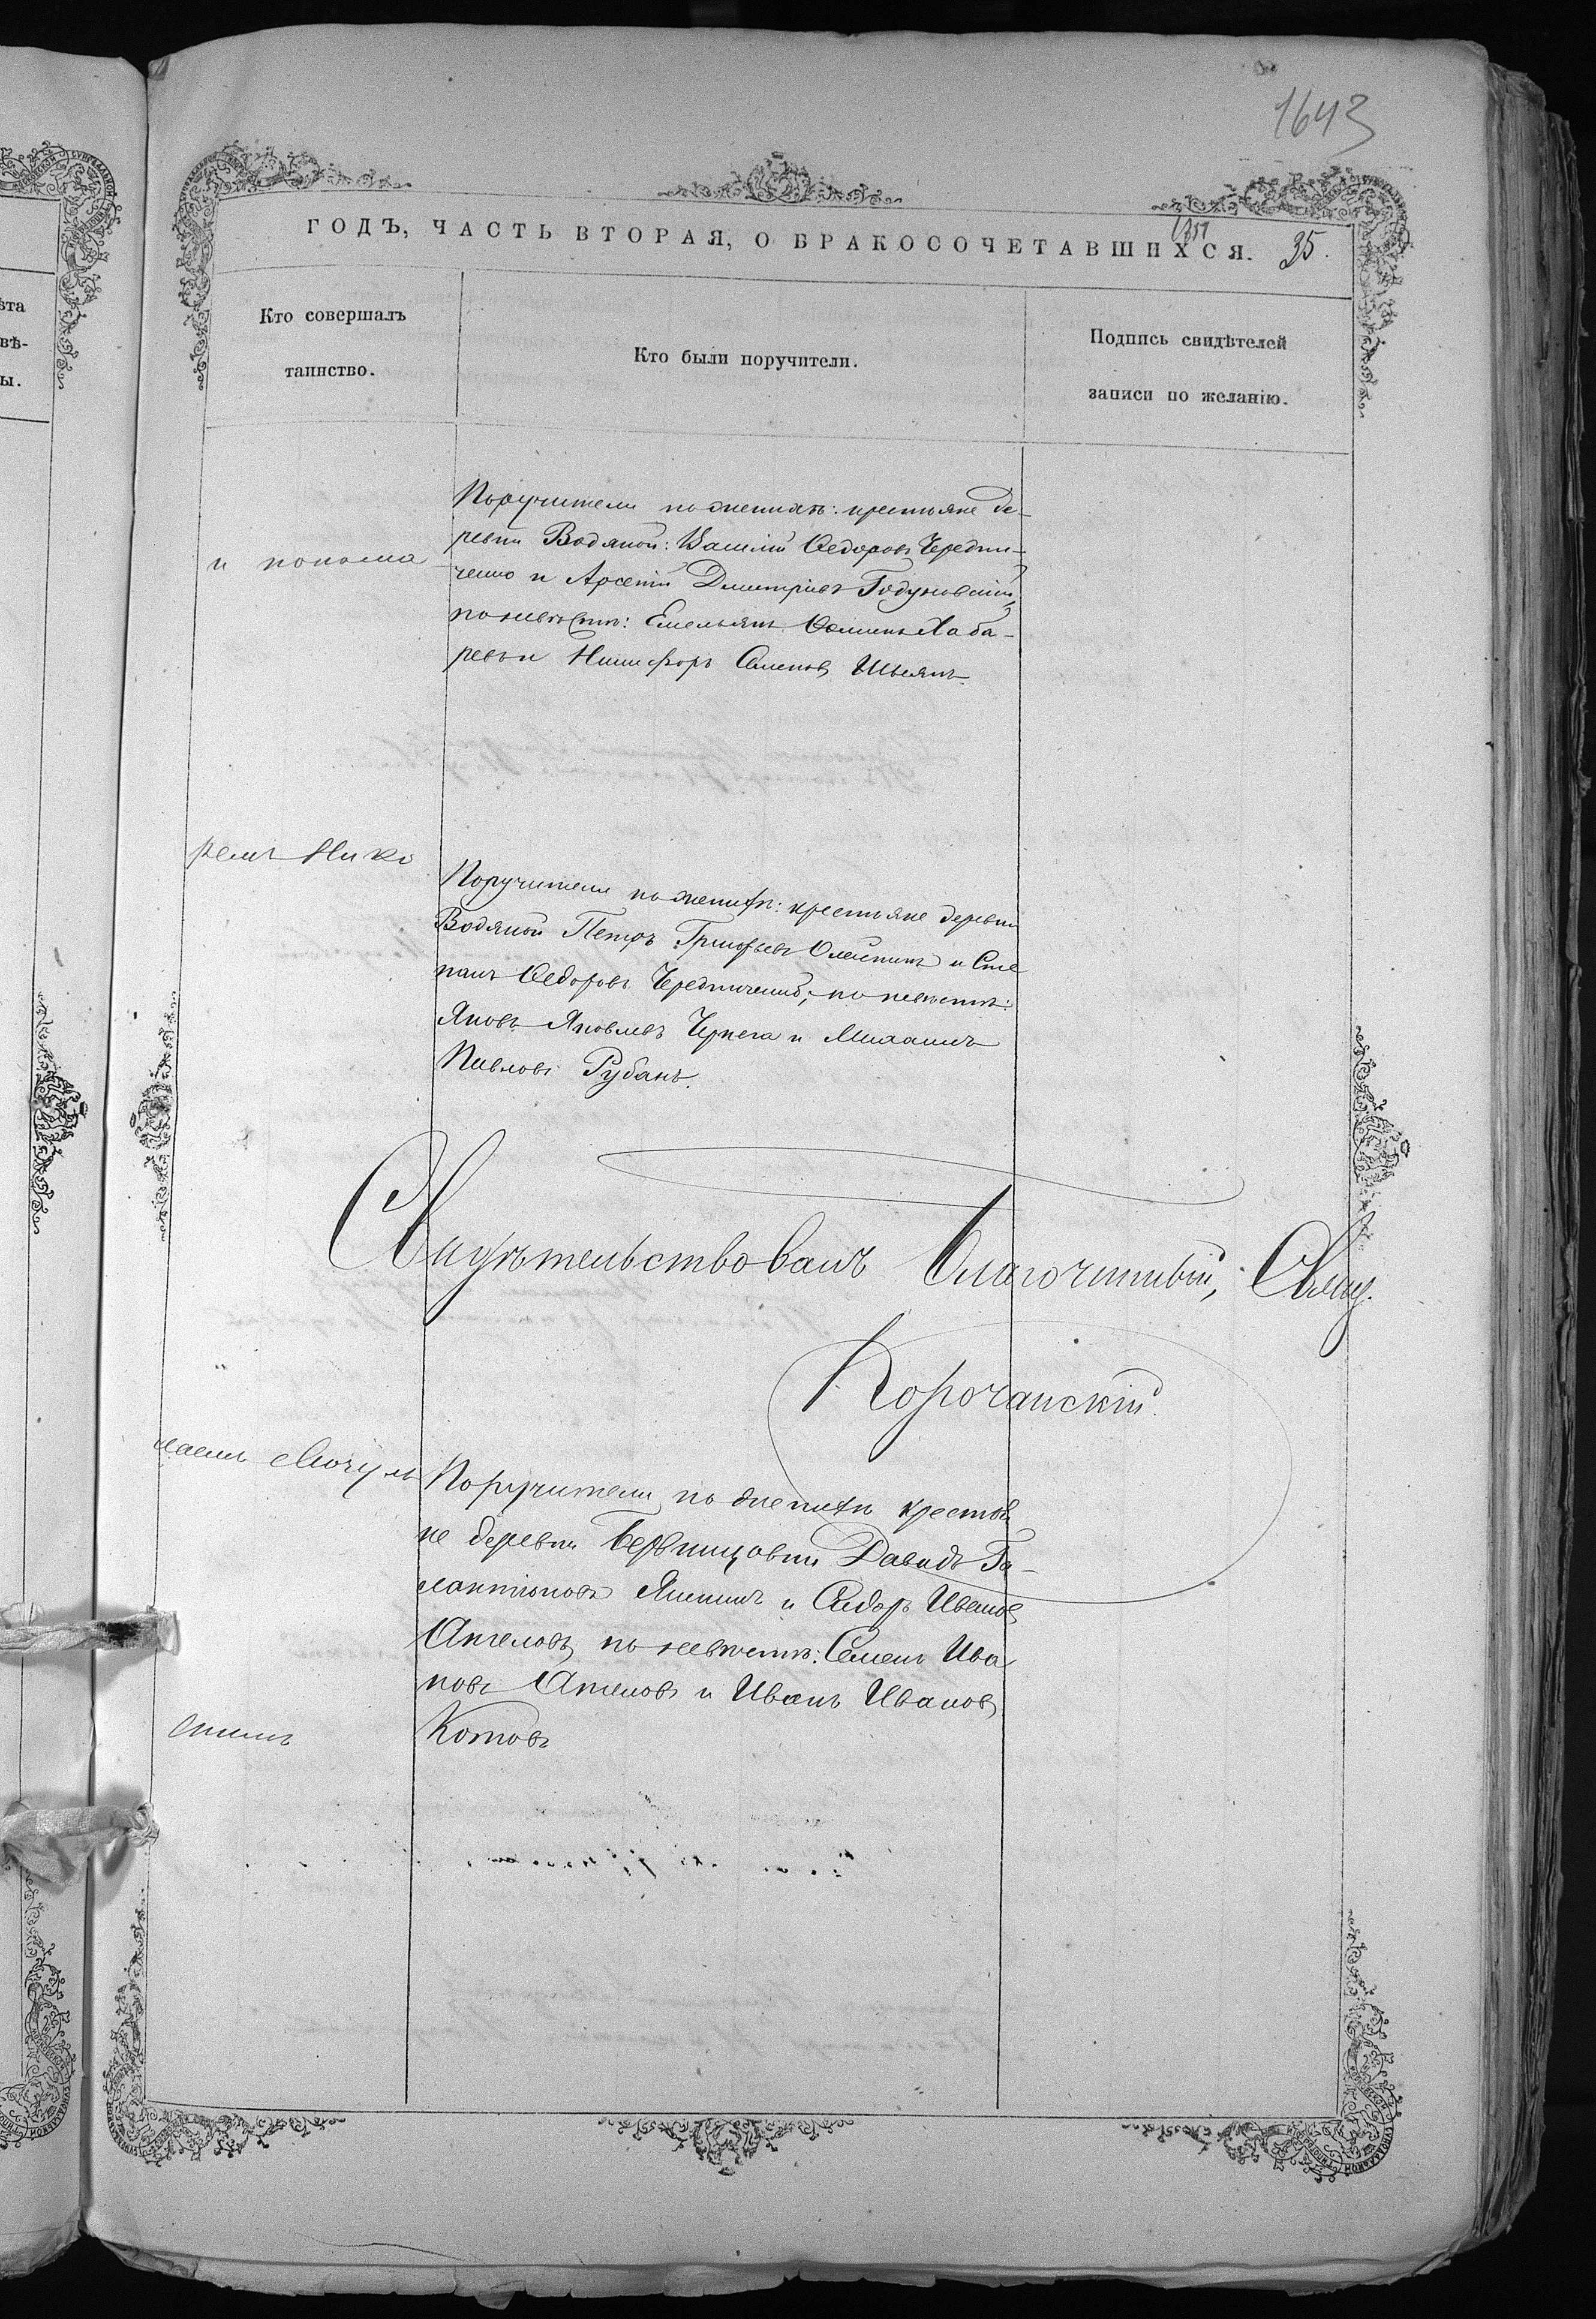 1643
ГОДЪ, ЧАСТЬ ВТОРАЯ, О БРАКОСОЧЕТАВШИХСЯ. 35.
Кто совершалъ
таинство.
Кто были поручители.
Подпись свидѣтелей
записи по желанію.
ѣта
вѣ-
ы.
и понома
Поручители по женихѣ: крестьяне де-
ревни Водяной: Василій Ѳедоровъ Чередни-
ченко и Арсеній Димитріевъ Годуновскій,
по невѣстѣ: Емельянъ Ѳоминъ Хаба-
ревъ и Никифоръ Семеновъ
ремъ Нико
Поручители по женихѣ: крестьяне деревни
Водяной Петръ Григорьевъ Олейникъ и Сте
панъ Ѳедоровъ Чередниченко; по невѣстѣ:
Яковъ Яковлевъ Чернега и Михаилъ
Павловъ Рубанъ.
Свидѣтельствовалъ Благочинный, Свящ.
Корочанскій.
лаемъ
Поручители по женихѣ крестья
не деревни Давидъ Га-
лактіоновъ и Сидоръ Ивановъ
Ангеловъ, по невѣстѣ: Семенъ Ива
новъ Ангеловъ и Иванъ Ивановъ
Котовъ